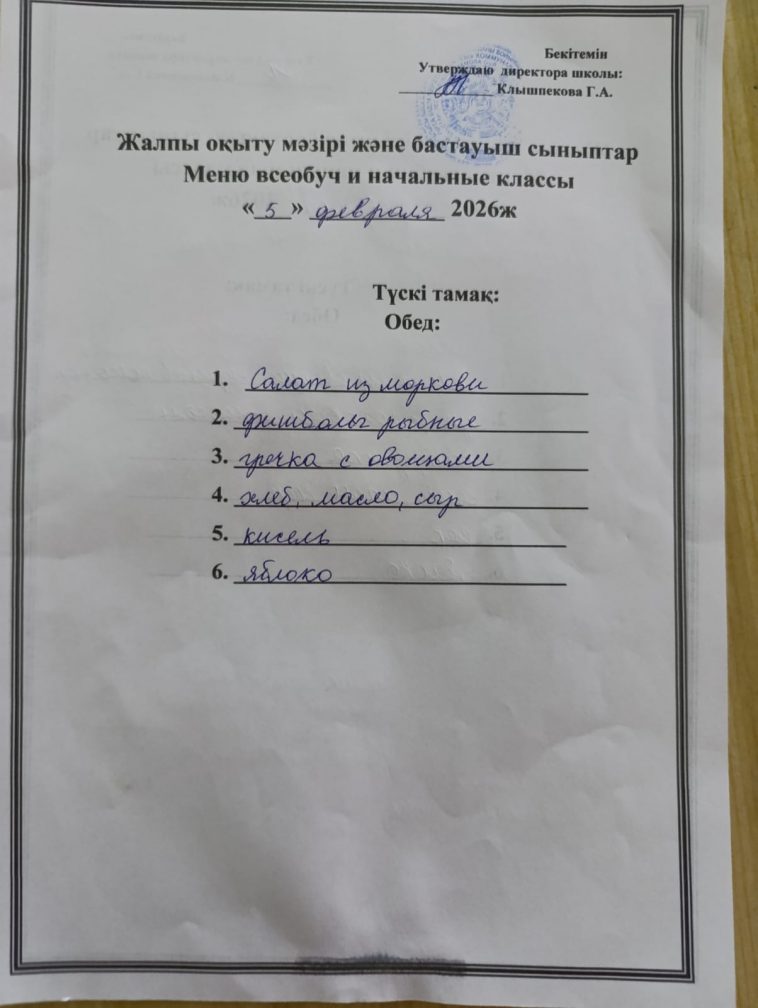 Бекітемін
Утверждаю директора школы:
Клышпекова Г.А.
Жалпы оқыту мәзірі және бастауыш сыныптар
Меню всеобуч и начальные классы
«5» февраля 2026ж
Түскі тамақ:
Обед:
1. Салат из моркови
2. фишболы рыбные
3. гречка с овощами
4. хлеб, масло, сыр
5. кисель
6. яблоко